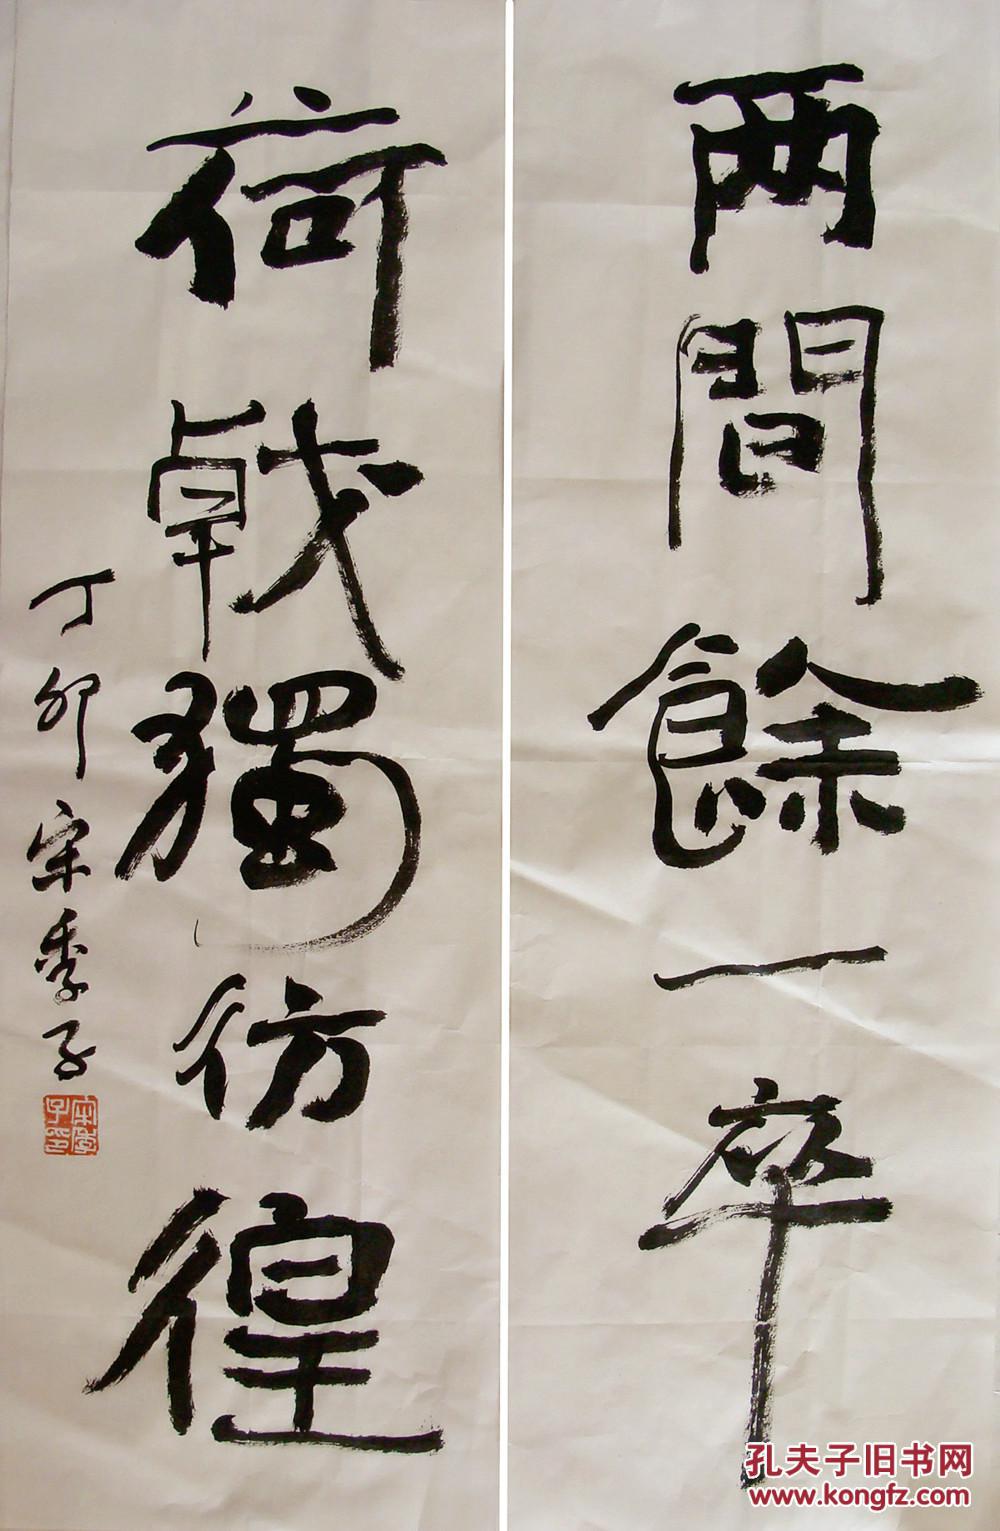 两間餘一卒
荷戟獨彷徨
丁卯宋季子
宋季子印
孔夫子旧书网
www.kongfz.com